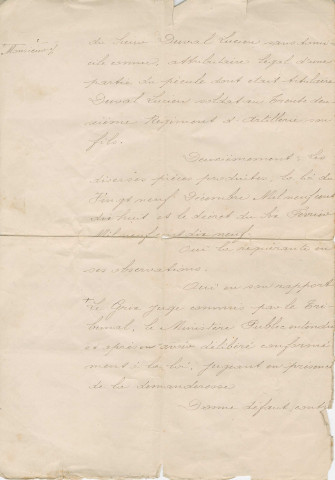 Monsieur
du Sieur Duval Lucien sans domi-
cile connu, attributaire légal d'une
partie du pécule dont était titulaire
Duval Lucien soldat au trente deu-
xième Régiment d'Artillerie son
fils.
Deuxièmement: les
diverses pièces produites, la loi du
Vingt neuf Décembre Mil neuf cent
dix huit et le décret du
Mil neuf cent dix neuf.
Ouï la requérante en
ses observations.
Ouï en son rapport
Le Juge commis par le Tri-
bunal, le Ministère Public entendu
et après en avoir délibéré conformé-
ment à la loi, jugeant en présence
de la demanderesse
Donne défaut contre